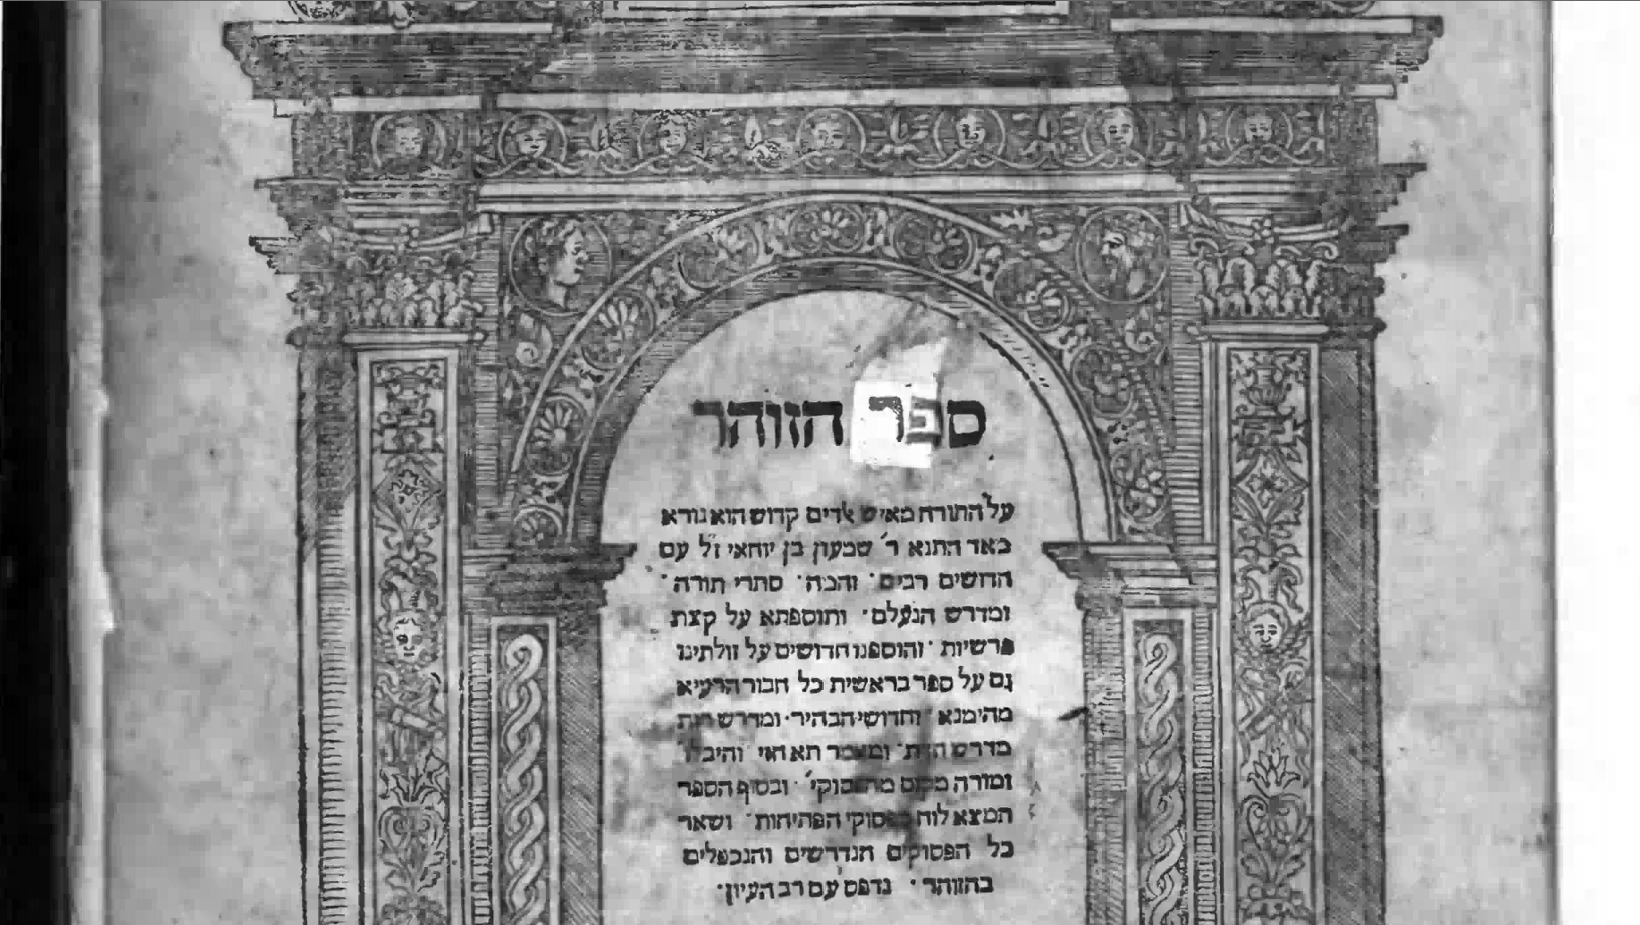 ספר הזוהר
על התורה מאיש אדים קדוש הוא נורא
מאד התנא ר' שמעון בן יוחאי ז"ל עם
חדושים רבים · והמה · סתרי תורה ·
ומדרש הנעלם · ותוספתא על קצת
פרשיות · והוספנו חדושים על זולתינו
גם על ספר בראשית כל חבור הרעיא
מהימנא · וחדושי הבהיר · ומדרש רות
מדרש · ומאמר תא חזי · והיכלו'
ומורה מקום מהפסוקי' · ובסוף הספר
תמצא לוח מפסוקי הפתיחות · ושאר
כל הפסוקים הנדרשים והנכפלים
בהזוהר · נדפס עם רב העיון ·